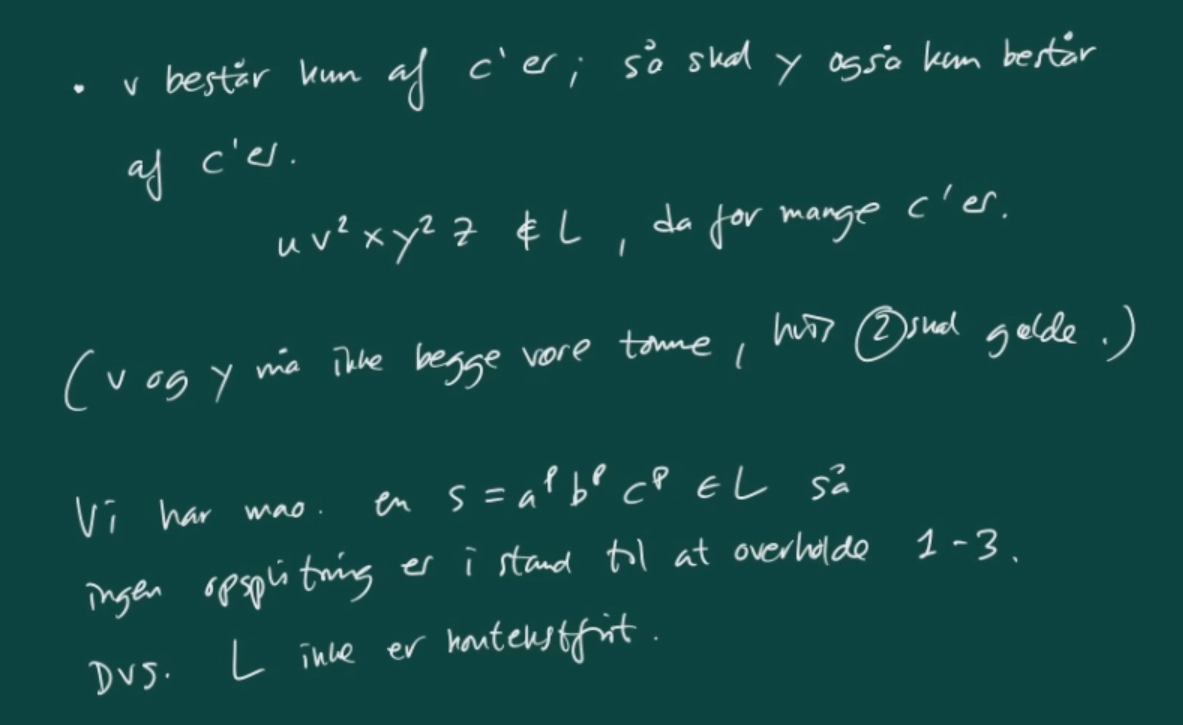 • v består kun af c'er; så skal y også kun består
af c'er.
uv²xy²z ∉ L, da for mange c'er.
(v og y må ikke begge være tomme, hvis ② skal gælde.)
Vi har mao. en s = aᵖbᵖcᵖ ∈ L så
ingen opsplitning er i stand til at overholde 1-3.
Dvs. L ikke er kontekstfrit.